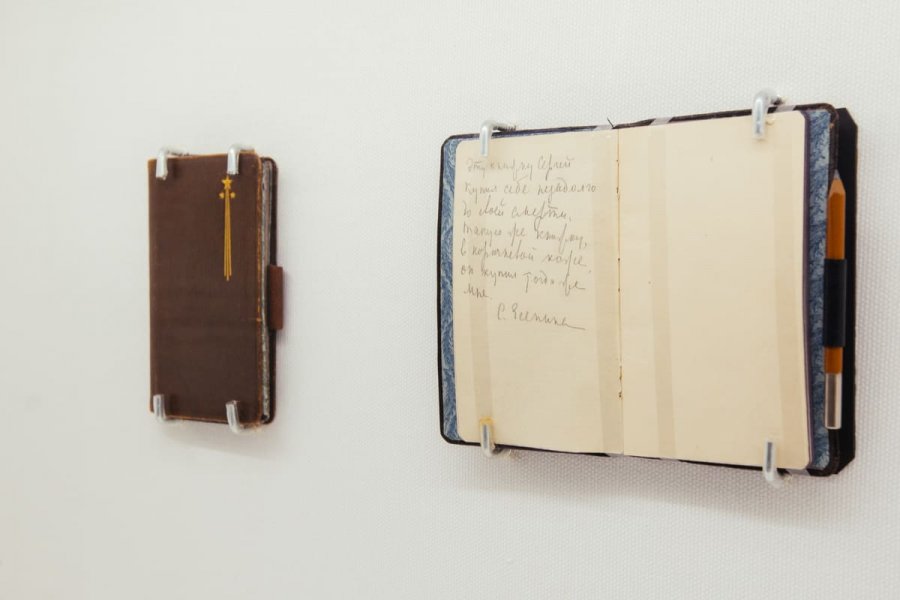 Эту книжку Сергей
купил себе незадолго
до своей смерти.
Такую же книжку,
в коричневой коже,
он купил тогда же
мне.
С. Есенина